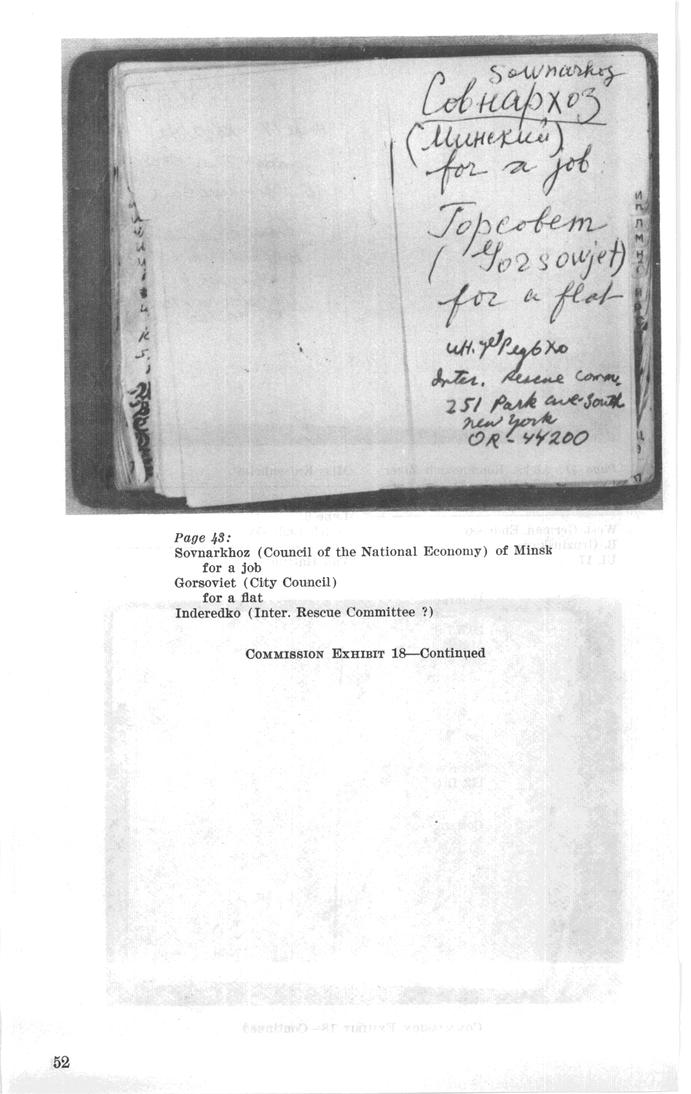 Sownarkhoz
Совнархоз
(Минский)
for a job
Горсовет
(Gorsowjet)
for a flat
Inter. Rescue Comm.
251 Park ave South
new york
OR-44200
Page 43:
Sovnarkhoz (Council of the National Economy) of Minsk
for a job
Gorsoviet (City Council)
for a flat
Inderedko (Inter. Rescue Committee ?)
COMMISSION EXHIBIT 18—Continued
52